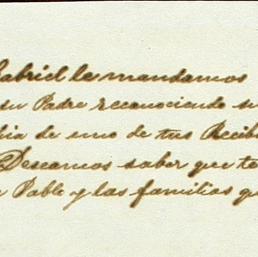 Gabriel les mandamos
su Padre reconociendo su
de uno de tus Recib
Deseamos saber que te
Pable y las familias qu